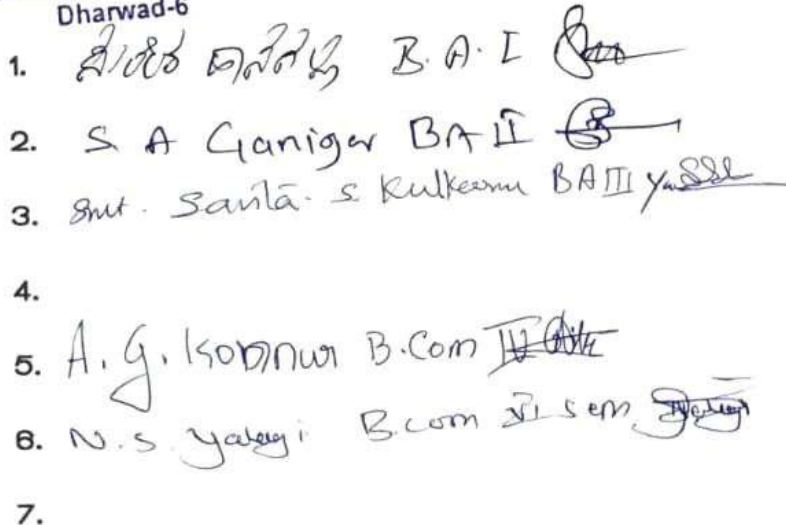 Dharwad-6
1. B.A. I
2. S A Ganiger BA II
3. Smt. Savita. S Kulkarni BA III
4.
5. A. G. Kobnnur B.Com IV
6. N. S. Yalagi B.com VI sem
7.